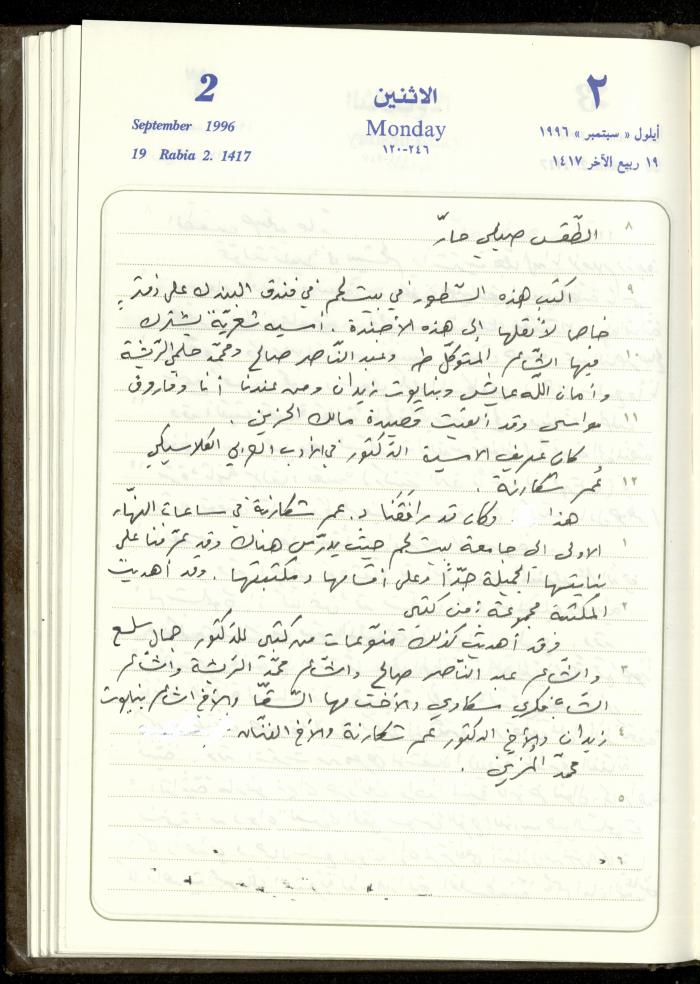 2
الاثنين
٢
September 1996
Monday
أيلول « سبتمبر » ١٩٩٦
19 Rabia 2. 1417
٢٤٦-١٢٠
١٩ ربيع الآخر ١٤١٧
٨ الطّقس صيفي حارّ
٩ اكتب هذه السّطور في بيت لحم في فندق البندك على دفترٍ
خاصا لأنقلها إلى هذه الأجندة. أمسيه شعريّة يشترك
١٠ فيها الشّاعر المتوكّل طه وعبد النّاصر صالح ومحمّد حلمي الرّيشة
وأمان اللّه عايش وبنايوت زيدان ومن عندنا أنا وفاروق
١١ مواسي وقد ألقيت قصيدة مالك الحزين.
كان عريف الامسية الدّكتور في الأدب العربي الكلاسيكي
١٢ عُمر شكارنة.
هذا وكان قد رافَقَنا د. عمر شكارنة في ساعات النّهار
١ الاولى إلى جامعة بيت لحم حيث يدرّس هناك وقد عرّفنا على
بنايتها الجميلة جدّاً وعلى أقسامها ومكتبتها. وقد أهديت
٢ المكتبة مجموعة من كتبي
وقد أهديت كذلك منوّعات من كتبي للدّكتور جمال سلسع
٣ والشّاعر عبد النّاصر صالح والشّاعر محمّد الرّيشة والشّاعر
الشّاب فكري سكاوي والأخت مها السّقّا والأخ الشاعر بنايوت
٤ زيدان والأخ الدكتور عمر شكارنة والأخ الفنّان
محمّد المزيّن.
٥
٦